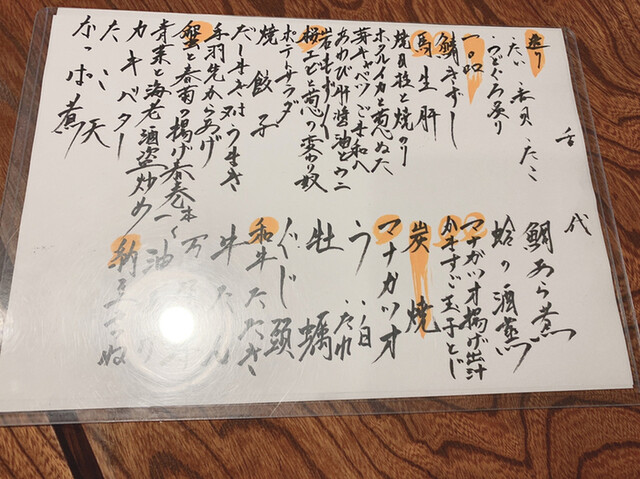 舌代
造り
・たい・赤貝・たこ
・のどぐろ炙り
一品
鯖きずし
馬生肝
焼貝柱と焼のり
ホタルイカと菊ぬた
芽キャベツごま和へ
あわび肝醤油とウニ
岩もずく
桜エビと葱の変わり奴
ポテトサラダ
焼餃子
だしまき or うまき
手羽先からあげ
蟹と春雨の揚げ春巻一本
青菜と海老酒盗炒め
カキバター
たこ天
なっぱ煮
鯛あら煮
蛤の酒蒸
マナガツオ揚げ出汁
かきすご玉子とじ
炭焼
マナガツオ
牡蠣
ぐじ頭
和牛たたき
牛たん